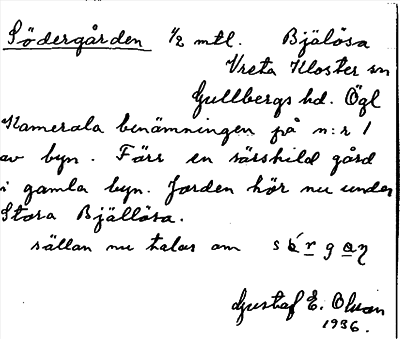 Södergården 1/2 mtl. Bjälösa
Vreta Kloster sn
Gullbergs hd. Ögl
Kamerala benämningen på n:r 1
av byn. Förr en särskild gård
i gamla byn. Jorden hör nu under
Stora Bjällösa.
sällan nu talas om
Gustaf E. Olson
1936.